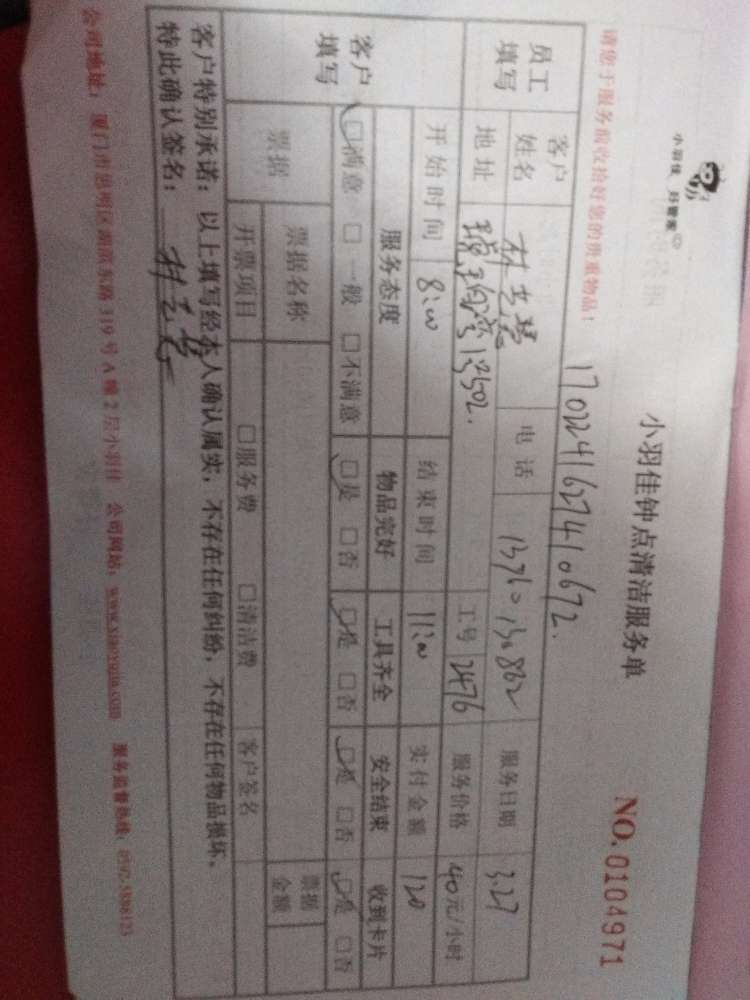 小羽佳 好管家
小羽佳钟点清洁服务单
NO.0104971
请您于服务前收拾好您的贵重物品！
1702241627410672.
员工填写
客户姓名
电话
服务日期 3.27
地址
1350
工号 2476
服务价格 40元/小时
开始时间 8:00
结束时间 11:00
实付金额 120
客户填写
服务态度 物品完好 工具齐全 安全结束 收到卡片
☑满意 □一般 □不满意 ☑是 □否 ☑是 □否 ☑是 □否 ☑是 □否
票据
票据名称
票据金额
开票项目 □服务费 □清洁费 客户签名
客户特别承诺：以上填写经本人确认属实，不存在任何纠纷，不存在任何物品损坏，
特此确认签名：
公司地址：厦门市思明区湖滨东路319号A幢2层小羽佳 公司网站：www.xiaoyujia.com 服务监督热线：0592-5886123